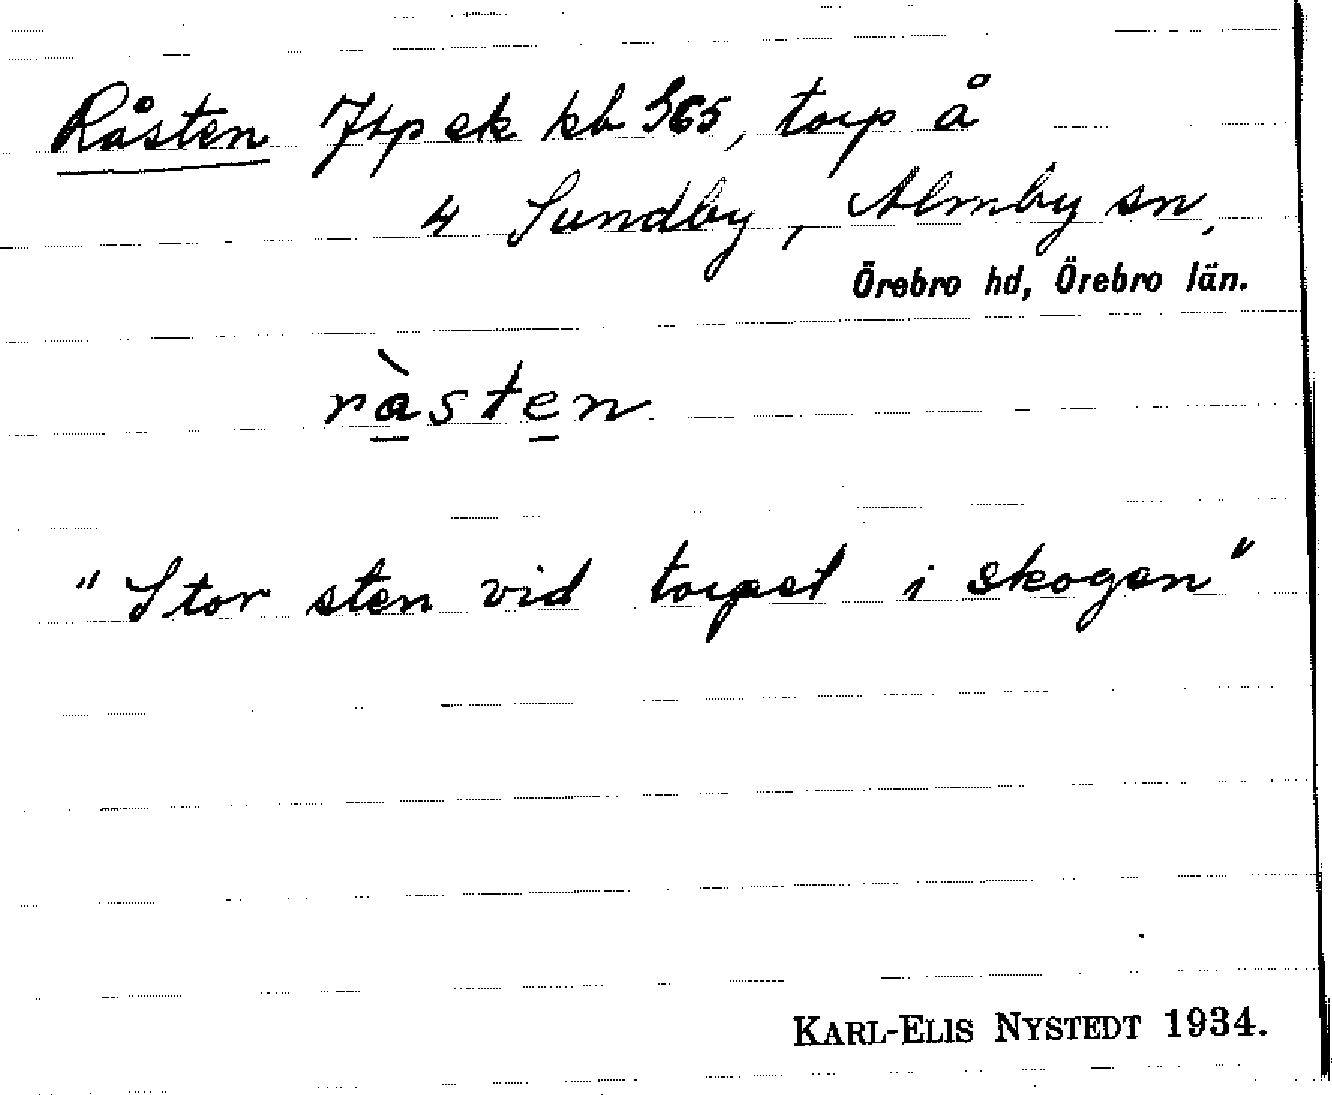 Råsten Jtp ek kb S65, torp å
4 Sundby, Almby sn,
Örebro hd, Örebro län.
ràsten
"Stor sten vid torpet i skogen"
KARL-ELIS NYSTEDT 1934.